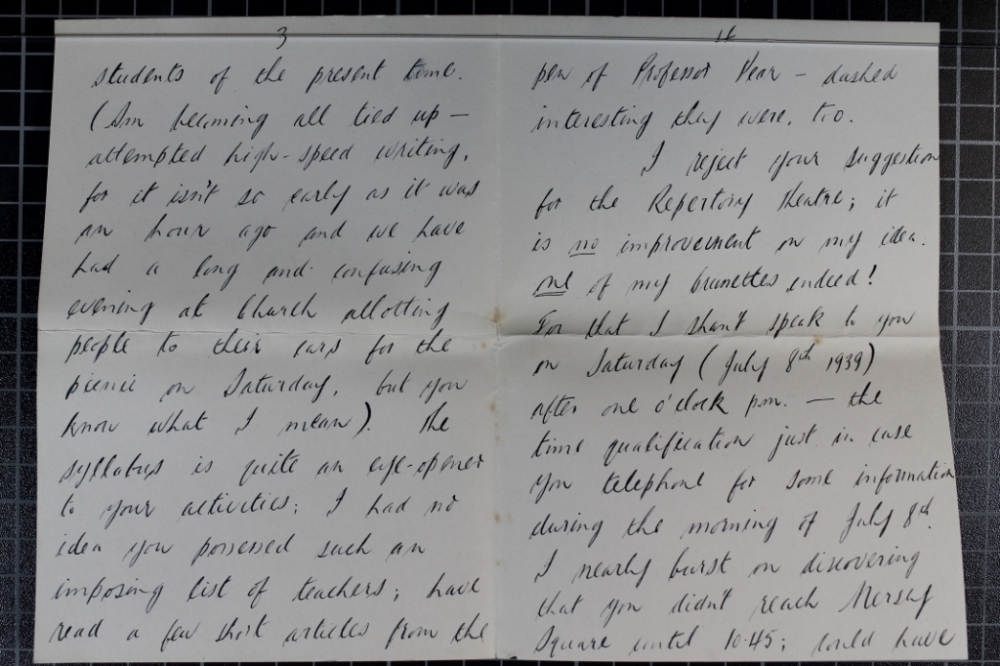 3
students of the present time.
(Am becoming all tied up –
attempted high-speed writing,
for it isn't so early as it was
an hour ago and we have
had a long and confusing
evening at Church allotting
people to their cars for the
picnic on Saturday, but you
know what I mean). The
syllabus is quite an eye-opener
to your activities; I had no
idea you possessed such an
imposing list of teachers; have
read a few short articles from the
4
pen of Professor Pear – dashed
interesting they were, too.
I reject your suggestion
for the Repertory Theatre; it
is no improvement on my idea.
one of my brunettes indeed!
For that I shan't speak to you
on Saturday (July 8th 1939)
after one o'clock p.m. – the
time qualification just in case
you telephone for some information
during the morning of July 8th.
I nearly burst on discovering
that you didn't reach Mersey
Square until 10.45; could have